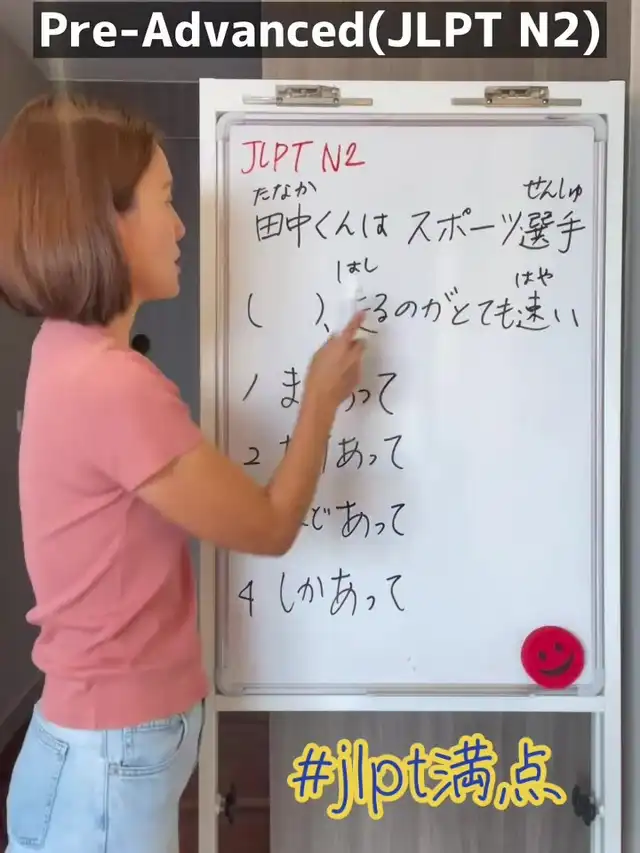 Pre-Advanced(JLPT N2)
JLPT N2
たなか せんしゅ
田中くんは スポーツ選手
はし はや
( )、走るのがとても速い
1 ま あって
2 あって
どあって
4 しかあって
#jlpt満点